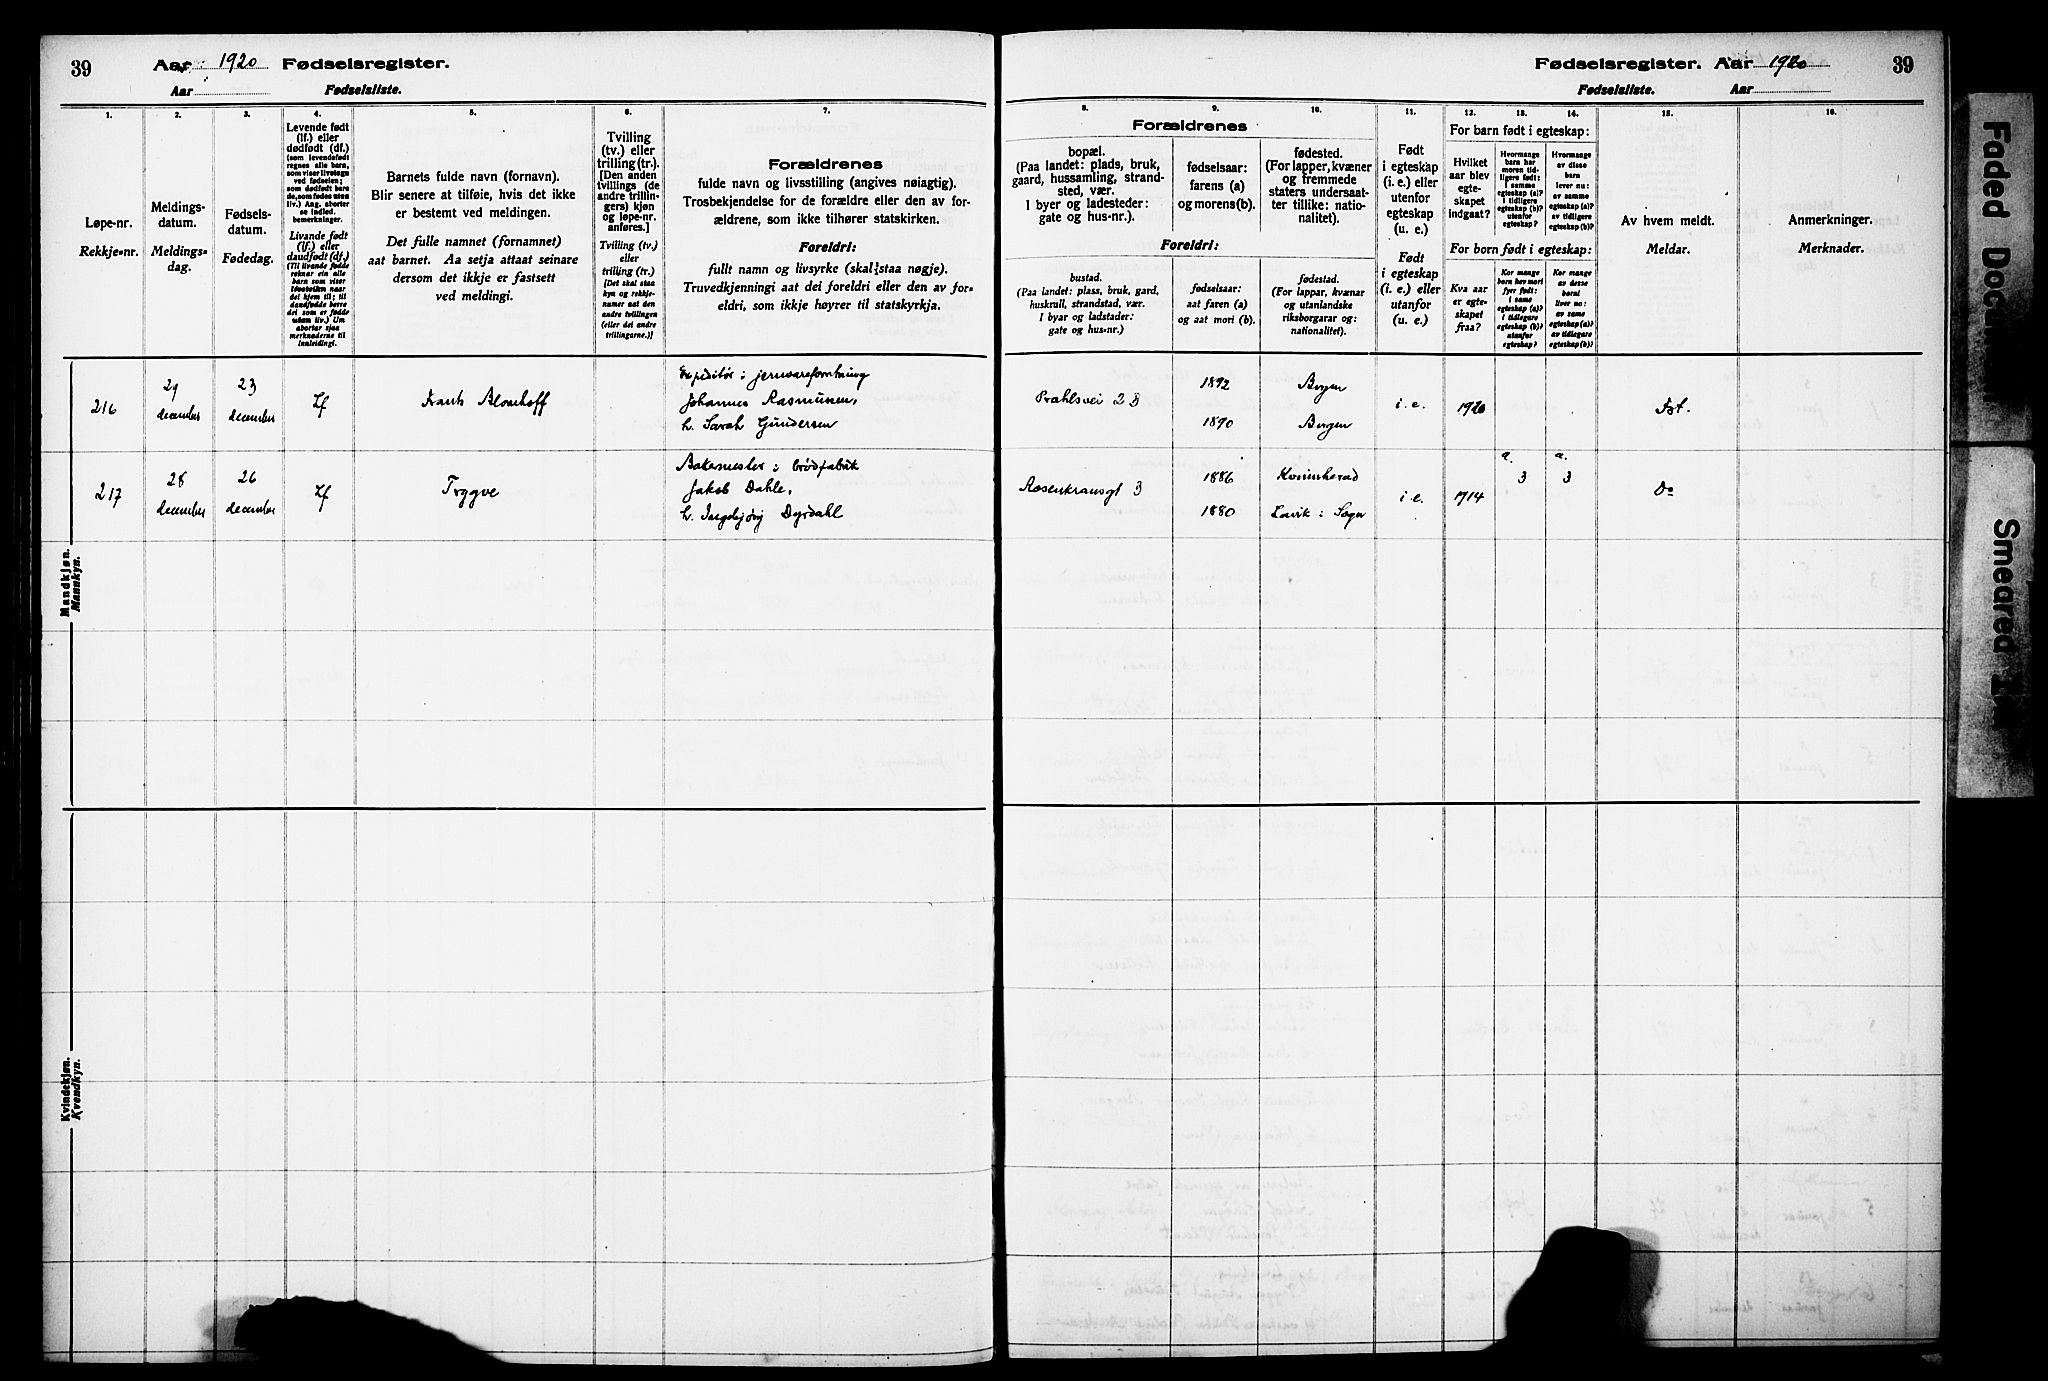 39
Aar 1920 Fødselsregister.
Aar Fødselsliste.
1.
Løpe-nr.
Rekkje=nr.
2.
Meldings-
datum.
Meldings=
dag.
3.
Fødsels-
datum.
Fødedag.
4.
Levende født
(lf.) eller
dødfødt (df.)
(som levendefødt
regnes alle barn,
som viser livstegn
ved fødselen;
som dødfødt bare
de, som fødes uten
liv.) Ang. aborter
se indled.
bemerkninger.
Livande født
(lf.) eller
daudfødt (df.)
(Til livande fødde
reknar ein alle
barn som viser
livsteikn naar
dei kjem til; til
daudfødde berre
dei som er fødde
utan liv.) Um
abortar sjaa
merknaderne til
innleidingi.
5.
Barnets fulde navn (fornavn).
Blir senere at tilføie, hvis det ikke
er bestemt ved meldingen.
Det fulle namnet (fornamnet)
aat barnet. Aa setja attaat seinare
dersom det ikkje er fastsett
ved meldingi.
6.
Tvilling
(tv.) eller
trilling (tr.).
[Den anden
tvillings (de
andre trillin-
gers) kjøn
og løpe-nr.
anføres.]
Tvilling (tv.)
eller
trilling (tr.)
[Det skal staa
kyn og rekkje-
numer aat den
andre tvillingen
(eller dei andre
trillingarne.)]
7.
Forældrenes
fulde navn og livsstilling (angives nøiagtig).
Trosbekjendelse for de forældre eller den av for-
ældrene, som ikke tilhører statskirken.
Foreldri:
fullt namn og livsyrke (skal staa nøgje).
Truvedkjenningi aat dei foreldri eller den av for=
eldri, som ikkje høyrer til statskyrkja.
Mandkjøn.
Mannkyn.
216
29
december
23
december
Lf
Frants Blomhoff
Expeditør i jernvareforretning
Johannes Rasmussen,
h. Sarah Gundersen
217
28
december
26
december
Lf
Trygve
Bakermester i brødfabrik
Jakob Dahle,
h. Ingebjørg Dyrdahl
Kvindekjøn.
Kvendkyn.
Fødselsregister. Aar 1920
39
Fødselsliste. Aar
8.
Forældrenes
bopæl.
(Paa landet: plads, bruk,
gaard, hussamling, strand-
sted, vær.
I byer og ladesteder:
gate og hus-nr.).
Foreldri:
bustad.
(Paa landet: plass, bruk, gard,
huskrull, strandstad, vær.
I byar og ladstader:
gate og hus-nr.)
9.
fødselsaar:
farens (a)
og morens(b).
fødselsaar:
aat faren (a)
og aat mori (b).
10.
fødested.
(For lapper, kvæner
og fremmede
staters undersaat-
ter tillike: natio-
nalitet).
fødestad.
(For lappar, kvænar
og utanlandske
riksborgarar og:
nationalitet).
11.
Født
i egteskap
(i. e.) eller
utenfor
egteskap
(u. e.)
Født
i egteskap
(i. e.) eller
utanfor
(u. e.)
12. 13. 14.
For barn født i egteskap:
Hvilket
aar blev
egte-
skapet
indgaat?
Hvormange
barn har
moren tid-
ligere født:
i samme
egteskap (a)?
i tidligere
egteskap (b)?
utenfor
egteskap?
Hvormange
av disse
barn
lever nu:
av samme
egteskap (a)?
av tidligere
egteskap (b)?
For born født i egteskap:
Kva aar
er egte-
skapet
fraa?
Kor mange
born hev mori
fyrr født:
i same
egteskap (a)?
i tidlegare
egteskap (b)?
utanfor
egteskap?
Kor mange
av desse
borni
liver no:
av same
egteskap (a)?
av tidlegare
egteskap (b)?
15.
Av hvem meldt.
Meldar.
16.
Anmerkninger.
Merknader.
Prahlsvei 2 B
1892
1890
Bergen
Bergen
i. e.
1920
Fst.
Rosenkransgt 3
1886
1880
Kvinnherad
Lavik i Sogn
i. e.
1914
a.
3
a.
3
Do
Faded Document
Smeared Ink